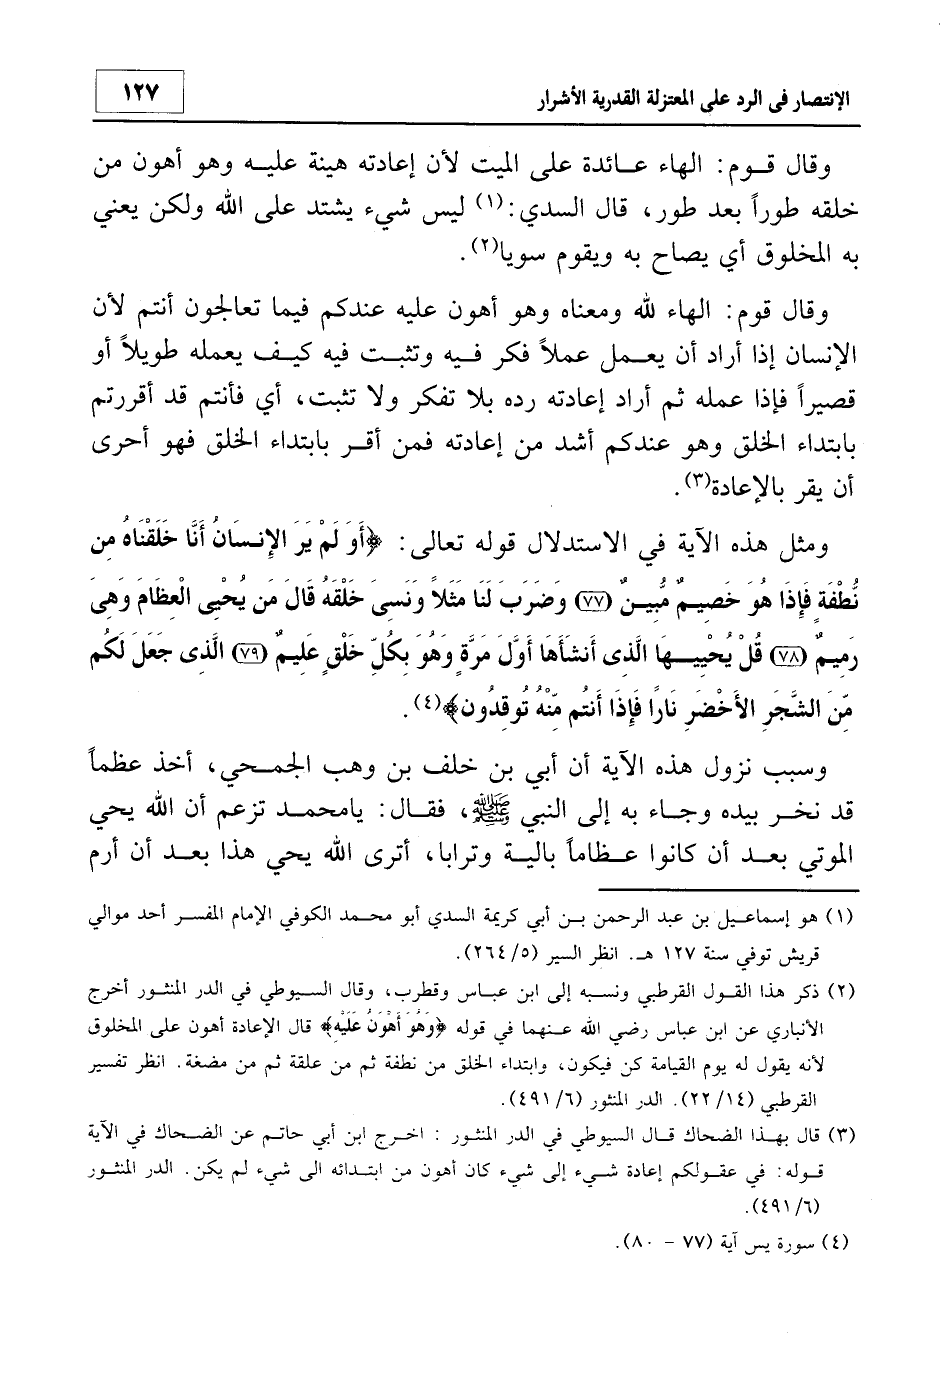 الإنتصار في الرد على المعتزلة القدرية الأشرار
١٢٧
وقال قوم: الهاء عائدة على الميت لأن إعادته هينة عليه وهو أهون من
خلقه طوراً بعد طور، قال السدي:(١) ليس شيء يشتد على الله ولكن يعني
به المخلوق أي يصاح به ويقوم سويا(٢).
وقال قوم: الهاء لله ومعناه وهو أهون عليه عندكم فيما تعالجون أنتم لأن
الإنسان إذا أراد أن يعمل عملاً فكر فيه وتثبت فيه كيف يعمله طويلاً أو
قصيراً فإذا عمله ثم أراد إعادته رده بلا تفكر ولا تثبت، أي فأنتم قد أقررتم
بابتداء الخلق وهو عندكم أشد من إعادته فمن أقر بابتداء الخلق فهو أحرى
أن يقر بالإعادة(٣).
ومثل هذه الآية في الاستدلال قوله تعالى: ﴿أَوَ لَمْ يَرَ الإِنسَانُ أَنَّا خَلَقْنَاهُ مِن
نُّطْفَةٍ فَإِذَا هُوَ خَصِيمٌ مُّبِينٌ (٧٧) وَضَرَبَ لَنَا مَثَلاً وَنَسِيَ خَلْقَهُ قَالَ مَن يُحْيِي الْعِظَامَ وَهِيَ
رَمِيمٌ (٧٨) قُلْ يُحْيِيهَا الَّذِي أَنشَأَهَا أَوَّلَ مَرَّةٍ وَهُوَ بِكُلِّ خَلْقٍ عَلِيمٌ (٧٩) الَّذِي جَعَلَ لَكُم
مِّنَ الشَّجَرِ الأَخْضَرِ نَارًا فَإِذَا أَنتُم مِّنْهُ تُوقِدُونَ﴾(٤).
وسبب نزول هذه الآية أن أبي بن خلف بن وهب الجمحي، أخذ عظماً
قد نخر بيده وجاء به إلى النبي ﷺ، فقال: يامحمد تزعم أن الله يحي
الموتي بعد أن كانوا عظاماً بالية وترابا، أترى الله يحي هذا بعد أن أرم
(١) هو إسماعيل بن عبد الرحمن بن أبي كريمة السدي أبو محمد الكوفي الإمام المفسر أحد موالي
قريش توفي سنة ١٢٧ هـ. انظر السير (٢٦٤/٥).
(٢) ذكر هذا القول القرطبي ونسبه إلى ابن عباس وقطرب، وقال السيوطي في الدر المنثور أخرج
الأنباري عن ابن عباس رضي الله عنهما في قوله ﴿وَهُوَ أَهْوَنُ عَلَيْهِ﴾ قال الإعادة أهون على المخلوق
لأنه يقول له يوم القيامة كن فيكون، وابتداء الخلق من نطفة ثم من علقة ثم من مضغة. انظر تفسير
القرطبي (٢٢/١٤). الدر المنثور (٤٩١/٦).
(٣) قال بهذا الضحاك قال السيوطي في الدر المنثور : اخرج ابن أبي حاتم عن الضحاك في الآية
قوله: في عقولكم إعادة شيء إلى شيء كان أهون من ابتدائه الى شيء لم يكن. الدر المنثور
(٤٩١/٦).
(٤) سورة يس آية (٧٧ - ٨٠).